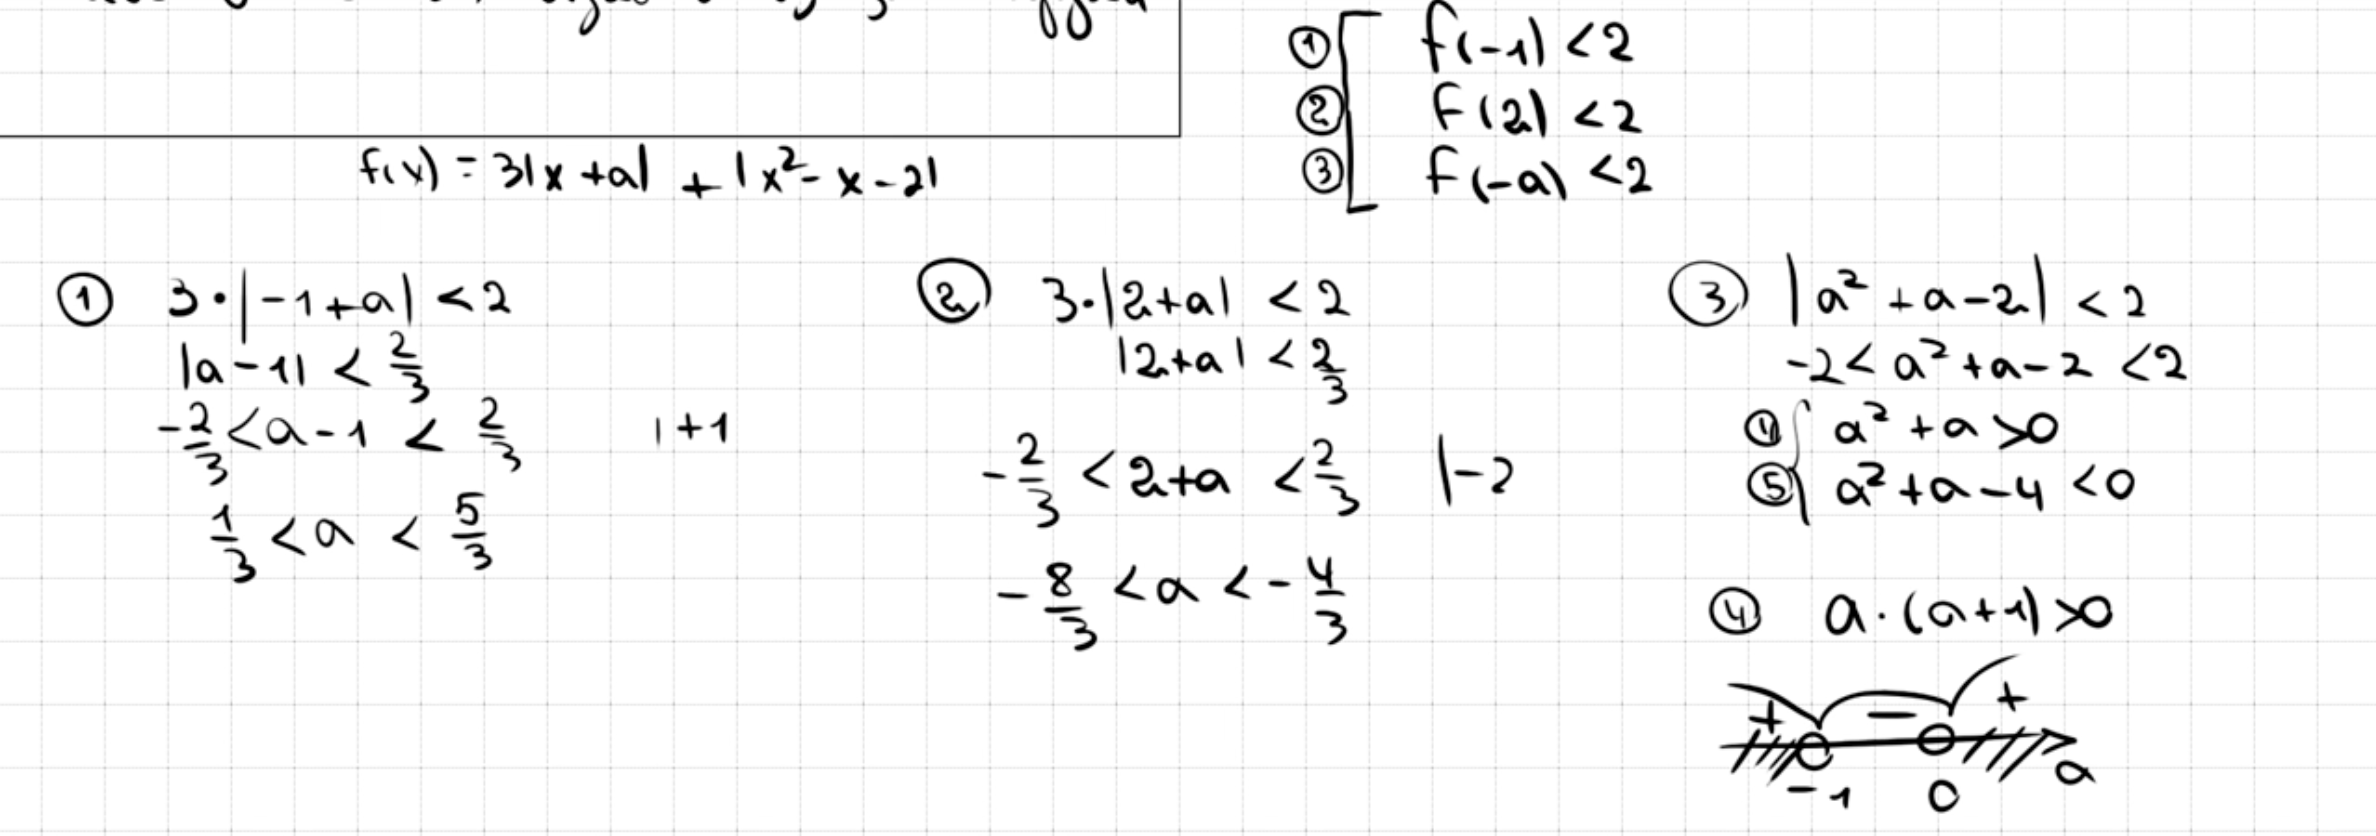 ① f(-1) < 2
② f(2) < 2
③ f(-a) < 2
f(x) = 3|x + a| + |x² - x - 2|
① 3·|-1+a| < 2
|a - 1| < 2/3
-2/3 < a - 1 < 2/3 | +1
1/3 < a < 5/3
② 3·|2+a| < 2
|2+a| < 2/3
-2/3 < 2+a < 2/3 | -2
-8/3 < a < -4/3
③ |a² + a - 2| < 2
-2 < a² + a - 2 < 2
④ a² + a > 0
⑤ a² + a - 4 < 0
④ a·(a+1) > 0
+ - +
-1 0 a